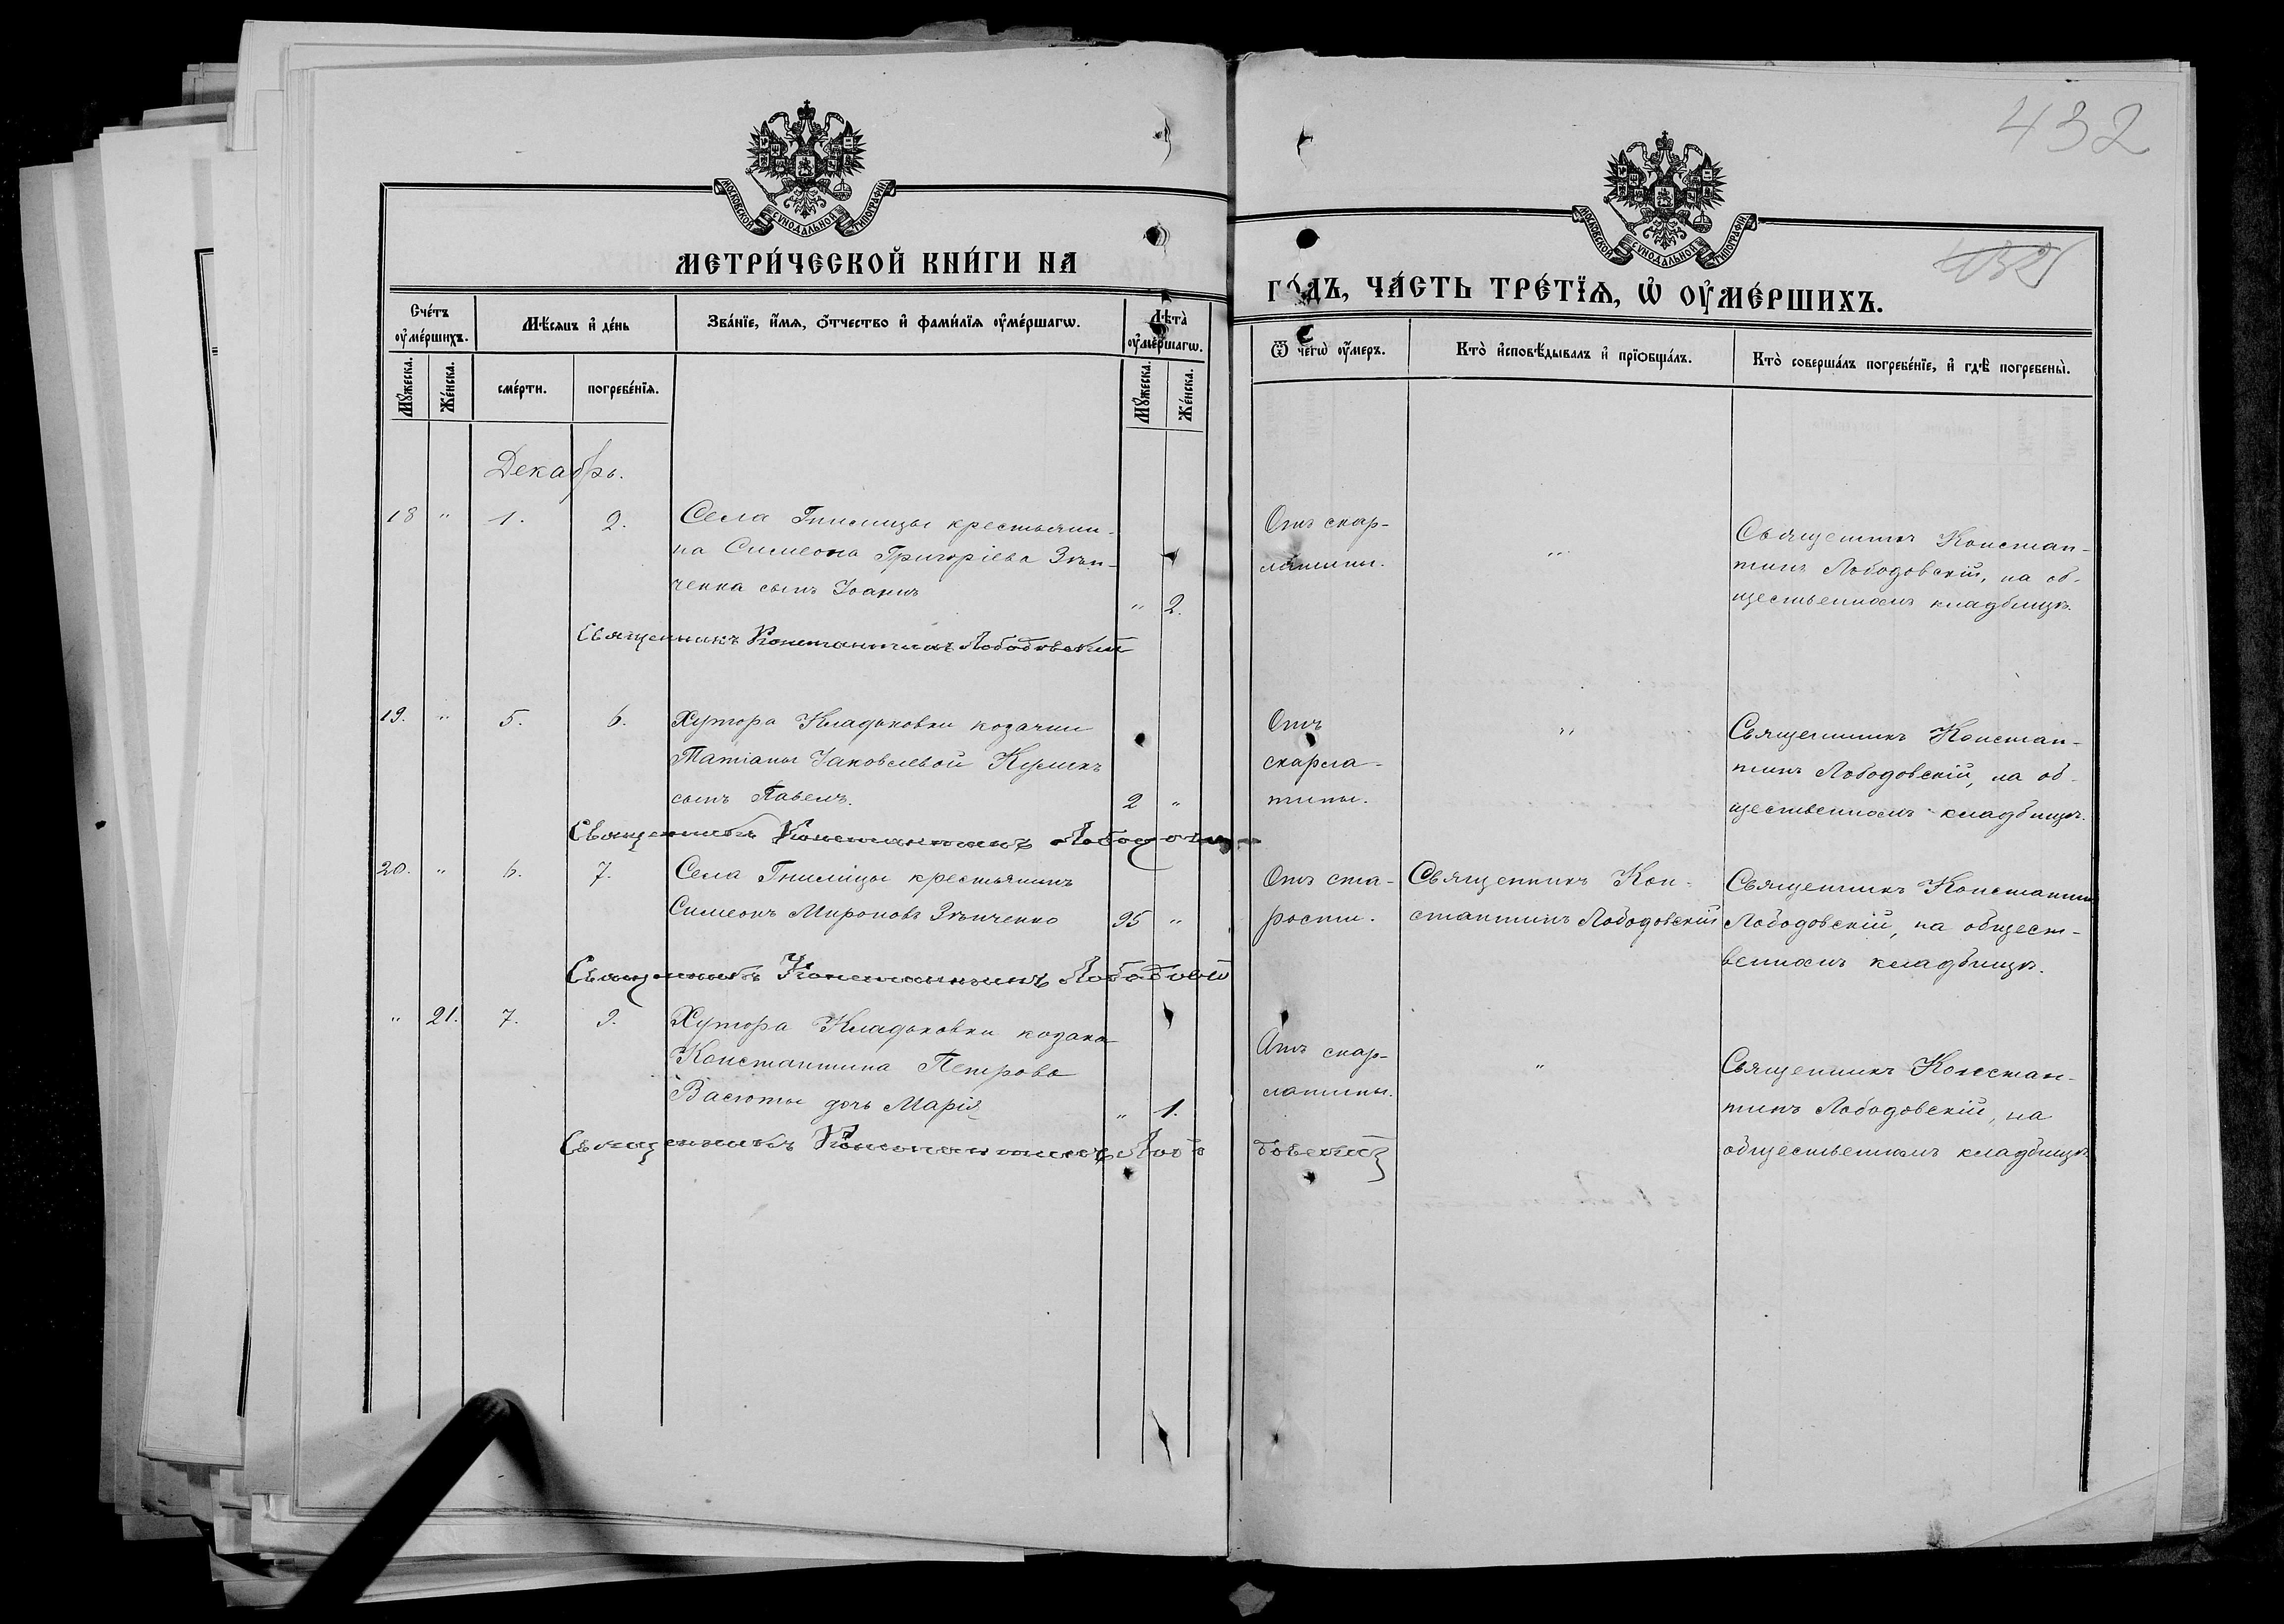 432
432
МОСКОВСКОЙ СѴНОДАЛЬНОЙ ТИПОГРАФІИ
МОСКОВСКОЙ СѴНОДАЛЬНОЙ ТИПОГРАФІИ
МЕТРИ́ЧЕСКОЙ КНИ́ГИ НА
ГО́ДЪ, ЧА́СТЬ ТРЕ́ТЇѦ, Ѡ҆ ОУ҆МЕ́РШИХЪ.
Сче́тъ оу҆ме́ршихъ.
Мѣ́сяцъ и҆ де́нь
Зва́нїе, и҆́мѧ, ѻ҆́тчество и҆ фами́лїѧ оу҆ме́ршагѡ.
Лѣ́та оу҆ме́ршагѡ.
Ѿ чегѡ̀ оу҆́меръ.
Кто̀ и҆сповѣ́дывалъ и҆ прїѻбща́лъ.
Кто̀ соверша́лъ погребе́нїе, и҆ гдѣ̀ погребены̀.
Мꙋ́жеска.
Же́нска.
сме́рти.
погребе́нїѧ.
Мꙋ́жеска.
Же́нска.
Декабрь.
18 " 1. 2.
Села Гнилицы крестьяни-
на Симеона Григоріева Зѣн-
ченка сынъ Іоаннъ
" 2.
Отъ скар-
латины.
"
Священникъ Констан-
тинъ Лободовскій, на об-
щественномъ кладбищѣ.
Священникъ Константинъ Лободовскій
19. " 5. 6.
Хутора Кладьковки козачки
Татіаны Іаковлевой Куликъ
сынъ Павелъ.
2 "
Отъ
скарла-
тины.
"
Священникъ Констан-
тинъ Лободовскій, на об-
щественномъ кладбищѣ.
Священникъ Константинъ
20. " 6. 7.
Села Гнилицы крестьянинъ
Симеонъ Мироновъ Зѣнченко
95 "
Отъ ста-
рости.
Священникъ Кон-
стантинъ Лободовскій
Священникъ Константинъ
Лободовскій, на общест-
венномъ кладбищѣ.
Священникъ Константинъ
" 21. 7. 9.
Хутора Кладьковки козака
Константина Петрова
Васюты дочь Марія
" 1.
Отъ скар-
латины.
"
Священникъ Констан-
тинъ Лободовскій, на
общественномъ кладбищѣ
Священникъ Константинъ Лобо
довскій